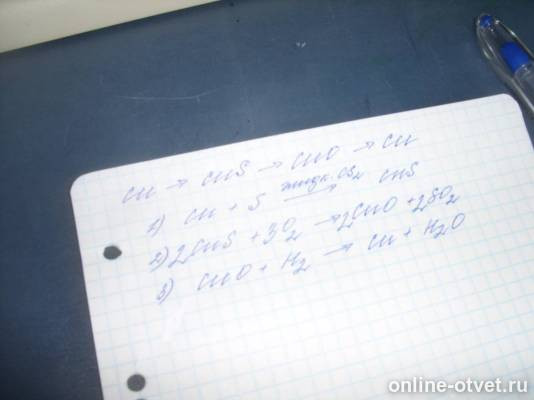 Cu → CuS → CuO → Cu
1) Cu + S жидк. CS₂ → CuS
2) 2CuS + 3O₂ → 2CuO + 2SO₂
3) CuO + H₂ → Cu + H₂O
online-otvet.ru